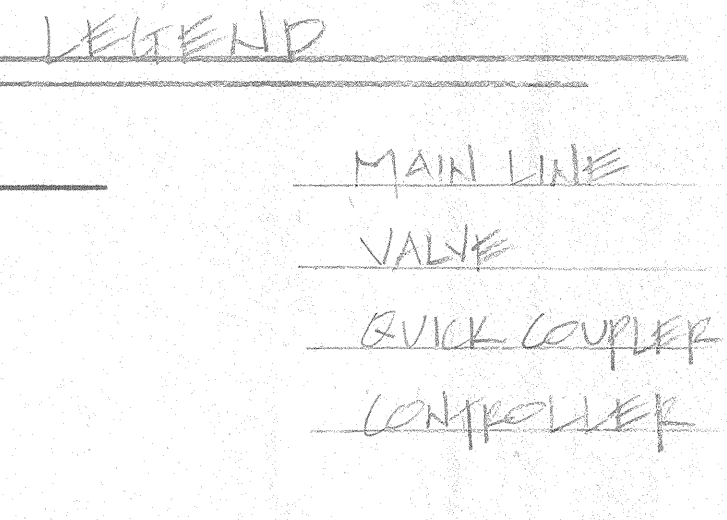 LEGEND
MAIN LINE
VALVE
QUICK COUPLER
CONTROLLER